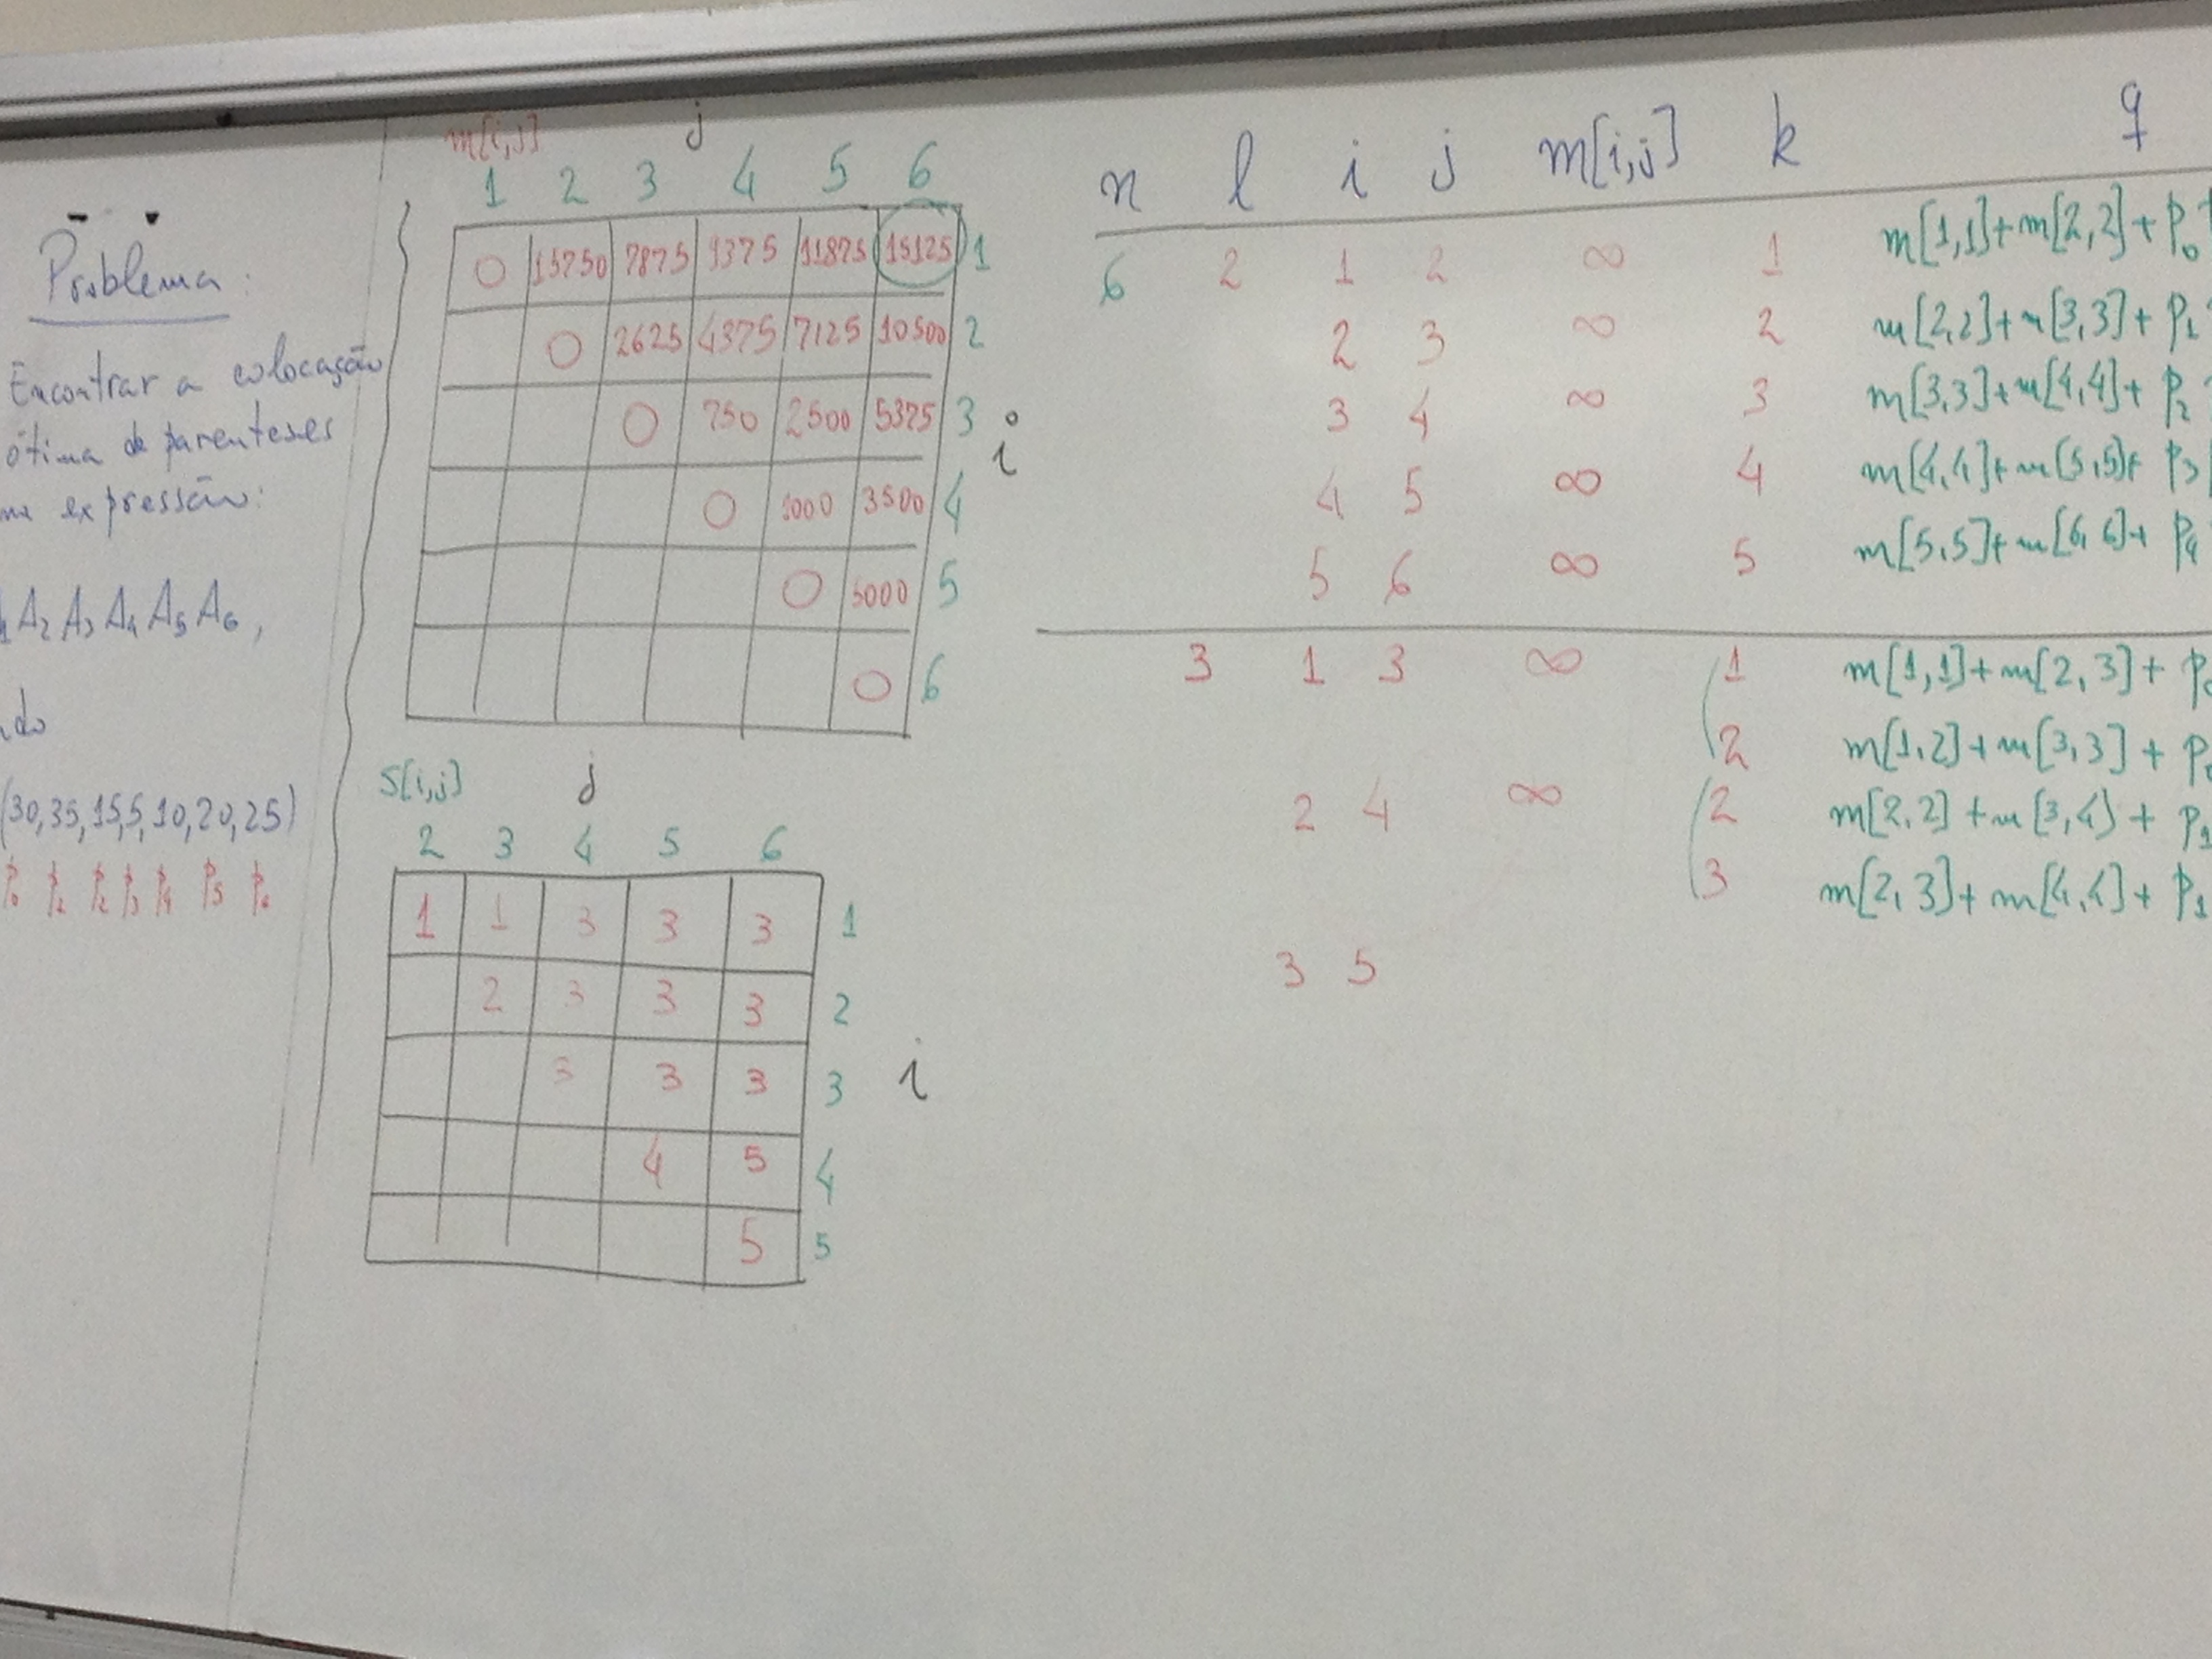 Problema:
Encontrar a colocação
ótima de parenteses
expressão:
A₂ A₃ A₄ A₅ A₆,
(30,35,15,5,10,20,25)
p₀ p₁ p₂ p₃ p₄ p₅ p₆
m[i,j] j
1 2 3 4 5 6
0 15750 7875 9375 11875 15125 1
0 2625 4375 7125 10500 2
0 750 2500 5375 3
i
0 1000 3500 4
0 5000 5
0 6
S[i,j] j
2 3 4 5 6
1 1 3 3 3 1
2 3 3 3 2
3 3 3 3 i
4 5 4
5 5
n l i j m[i,j] k q
6 2 1 2 ∞ 1 m[1,1]+m[2,2]+p₀
2 3 ∞ 2 m[2,2]+m[3,3]+p₁
3 4 ∞ 3 m[3,3]+m[4,4]+p₂
4 5 ∞ 4 m[4,4]+m[5,5]+p₃
5 6 ∞ 5 m[5,5]+m[6,6]+p₄
3 1 3 ∞ 1 m[1,1]+m[2,3]+p₀
2 m[1,2]+m[3,3]+p₀
2 4 ∞ 2 m[2,2]+m[3,4]+p₁
3 m[2,3]+m[4,4]+p₁
3 5